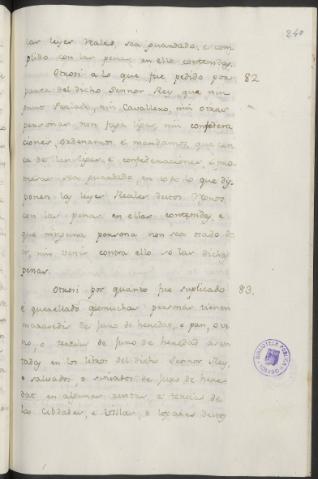 240
las leyes Reales, sea guardado, e com
plido con las penas en ello contenidas.
Otrosi a lo que fue pedido por
parte del dicho Sennor Rey que nin
guno Perlado, nin Cavallero, nin otras
personas non faga ligas, nin confedera
ciones, ordenamos e mandamos, que cerca
ca de las ligas, e confederaciones, e
sea guardado, en todo lo que dis
ponen las leyes Reales destos Reynos,
con las penas en ellas contenidas, e
que ninguna persona non sea osado de
ir, nin venir contra ello so las dichas
penas.
82
Otrosi por quanto fue suplicado
e querellado que muchas personas tienen
maravedis de juro de heredad, e pan, e vi
no, e tercias de juro de heredad asen
tados en los libros del dicho Sennor Rey,
e salvados, o situados de juro de here
dat en algunas rentas, e tercias de
las Cibdades, e Villas, e logares destos
83.
BIBLIOTECA PUBLICA